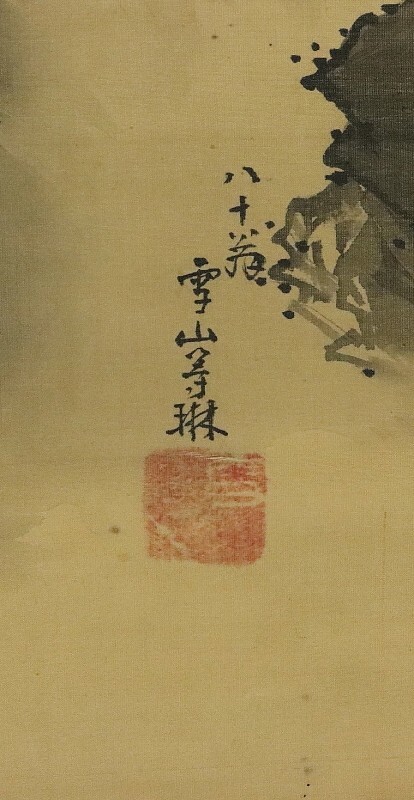 八十翁
雪山等琳